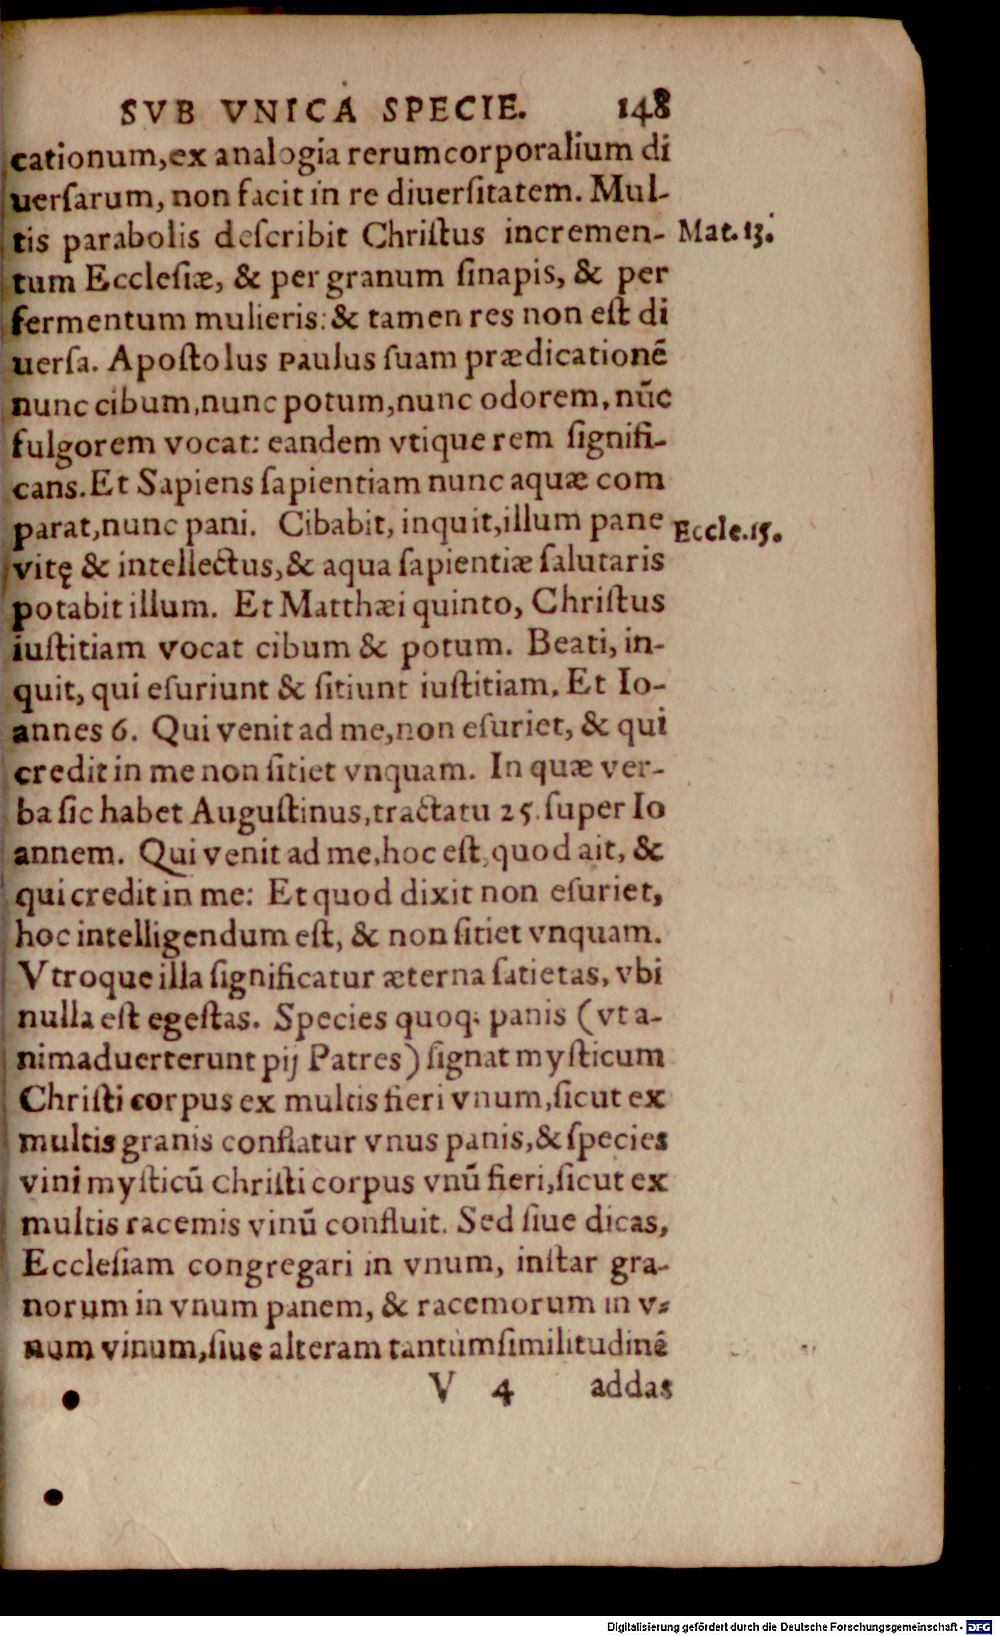 SVB VNICA SPECIE. 148
cationum, ex analogia rerum corporalium di
uersarum, non facit in re diuersitatem. Mul-
tis parabolis describit Christus incremen- Mat. 13.
tum Ecclesiæ, & per granum sinapis, & per
fermentum mulieris: & tamen res non est di
uersa. Apostolus Paulus suam prædicationē
nunc cibum, nunc potum, nunc odorem, nūc
fulgorem vocat: eandem vtique rem signifi-
cans. Et Sapiens sapientiam nunc aquæ com
parat, nunc pani. Cibabit, inquit, illum pane Eccle. 15.
vitę & intellectus, & aqua sapientiæ salutaris
potabit illum. Et Matthæi quinto, Christus
iustitiam vocat cibum & potum. Beati, in-
quit, qui esuriunt & sitiunt iustitiam. Et Io-
annes 6. Qui venit ad me, non esuriet, & qui
credit in me non sitiet vnquam. In quæ ver-
ba sic habet Augustinus, tractatu 25. super Io
annem. Qui venit ad me, hoc est, quod ait, &
qui credit in me: Et quod dixit non esuriet,
hoc intelligendum est, & non sitiet vnquam.
Vtroque illa significatur æterna satietas, vbi
nulla est egestas. Species quoq; panis (vt a-
nimaduerterunt pij Patres) signat mysticum
Christi corpus ex multis fieri vnum, sicut ex
multis granis conflatur vnus panis, & species
vini mysticū Christi corpus vnū fieri, sicut ex
multis racemis vinū confluit. Sed siue dicas,
Ecclesiam congregari in vnum, instar gra-
norum in vnum panem, & racemorum in v-
num vinum, siue alteram tantùm similitudinē
V 4 addas
Digitalisierung gefördert durch die Deutsche Forschungsgemeinschaft - DFG